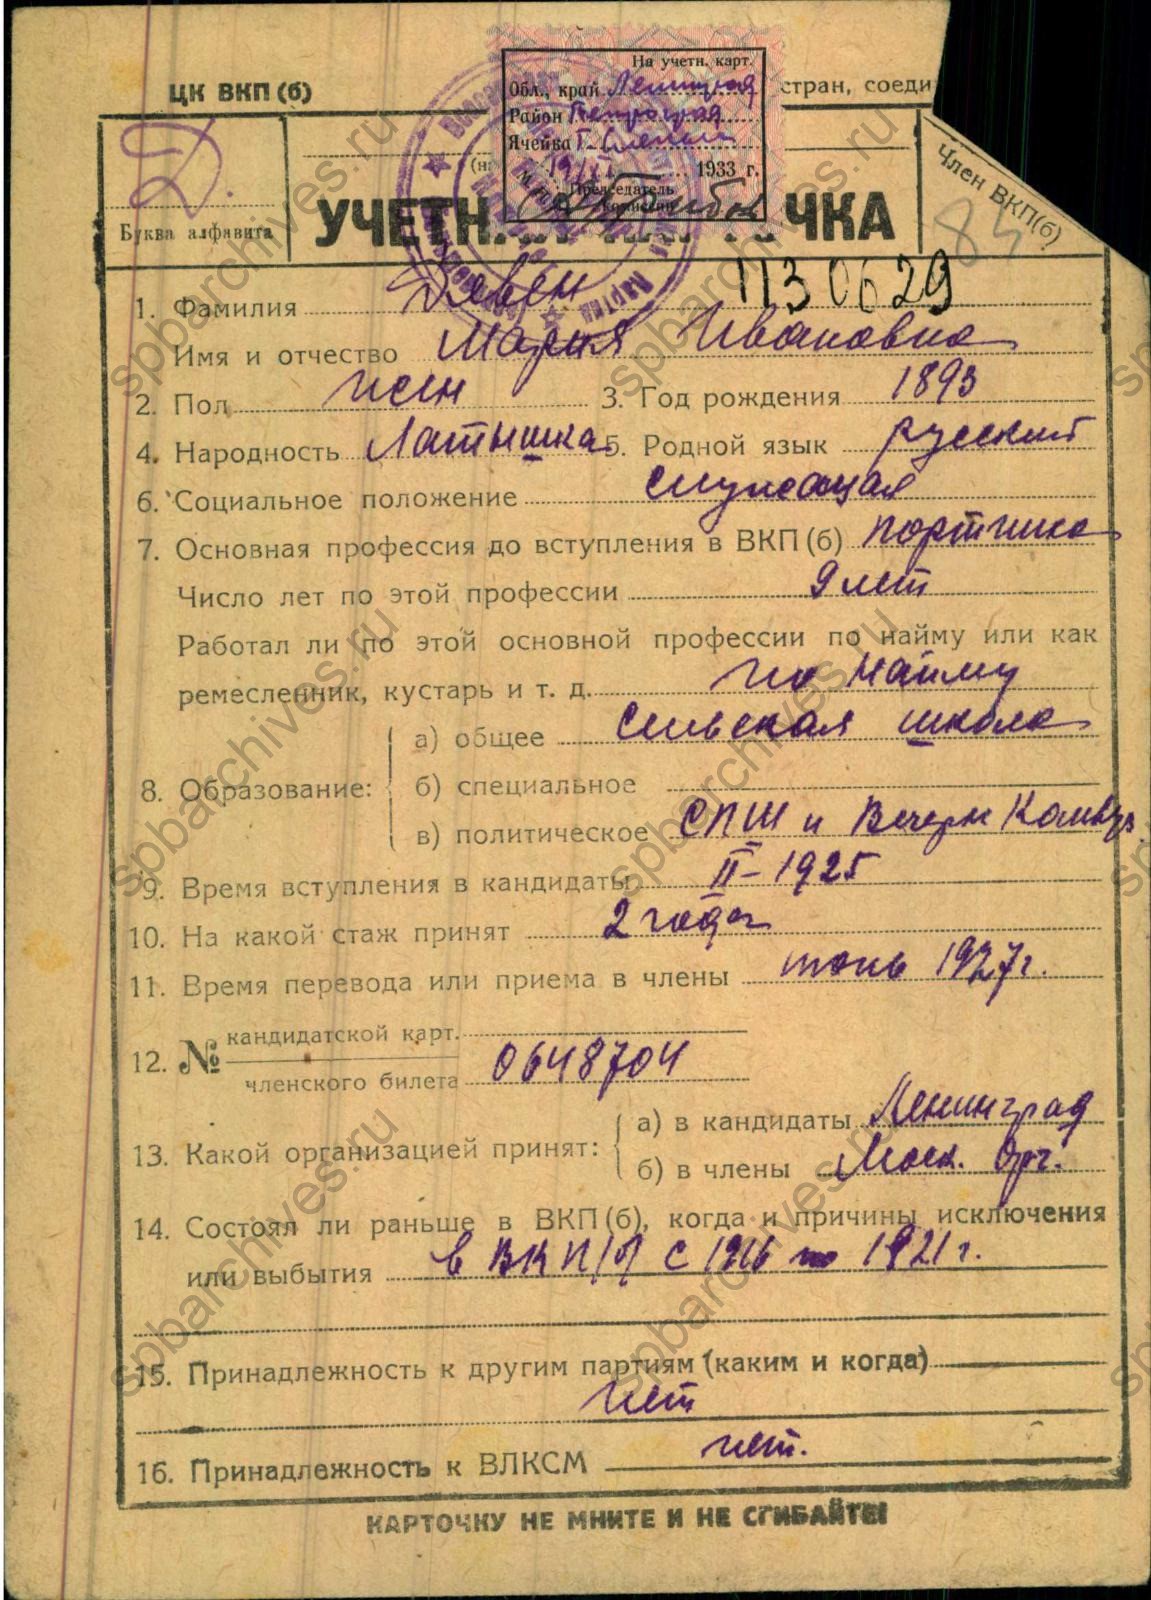 ЦК ВКП(б)
стран, соеди
На учетн. карт.
Обл., край
Район Петроград
Ячейка
19/XI 1933 г.
Председатель
комиссии
Д.
Буква алфавита
Член ВКП(б)
84
УЧЕТН ЧКА
1130629
1. Фамилия
Имя и отчество Мария Ивановна
2. Пол жен 3. Год рождения 1893
4. Народность Латышка 5. Родной язык русский
6. Социальное положение служащая
7. Основная профессия до вступления в ВКП(б) портниха
Число лет по этой профессии 9 лет
Работал ли по этой основной профессии по найму или как
ремесленник, кустарь и т. д. по найму
8. Образование:
а) общее Сельская школа
б) специальное
в) политическое СПШ и Вечерн Комвуз
9. Время вступления в кандидаты II-1925
10. На какой стаж принят 2 года
11. Время перевода или приема в члены июнь 1927г.
12. №
кандидатской карт.
членского билета 0648704
13. Какой организацией принят:
а) в кандидаты Ленинград
б) в члены Моск. Орг.
14. Состоял ли раньше в ВКП(б), когда и причины исключения
или выбытия в ВКП(б) с 1916 по 1921г.
15. Принадлежность к другим партиям (каким и когда)
нет
16. Принадлежность к ВЛКСМ нет.
КАРТОЧКУ НЕ МНИТЕ И НЕ СГИБАЙТЕ!
spbarchives.ru